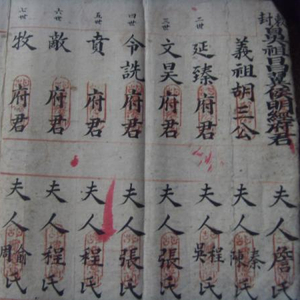 封鼻祖昌翼侯明經府君 夫人詹氏
義祖胡三公 夫人秦陳氏
二世 延臻府君 夫人程吳氏
三世 文昊府君 夫人張氏
四世 令詵府君 夫人張氏
五世 賁府君 夫人程氏
六世 敞府君 夫人程氏
七世 牧府君 夫人俞周氏